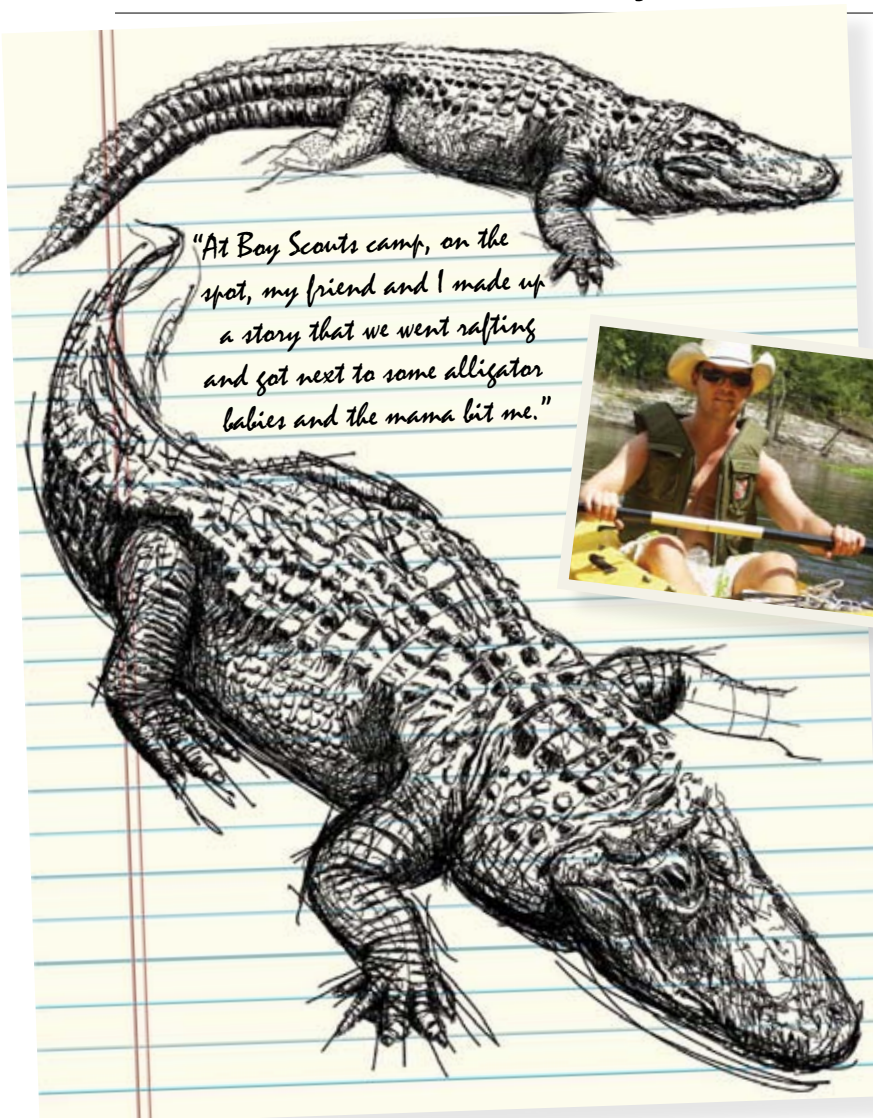 “At Boy Scouts camp, on the
spot, my friend and I made up
a story that we went rafting
and got next to some alligator
babies and the mama bit me.”